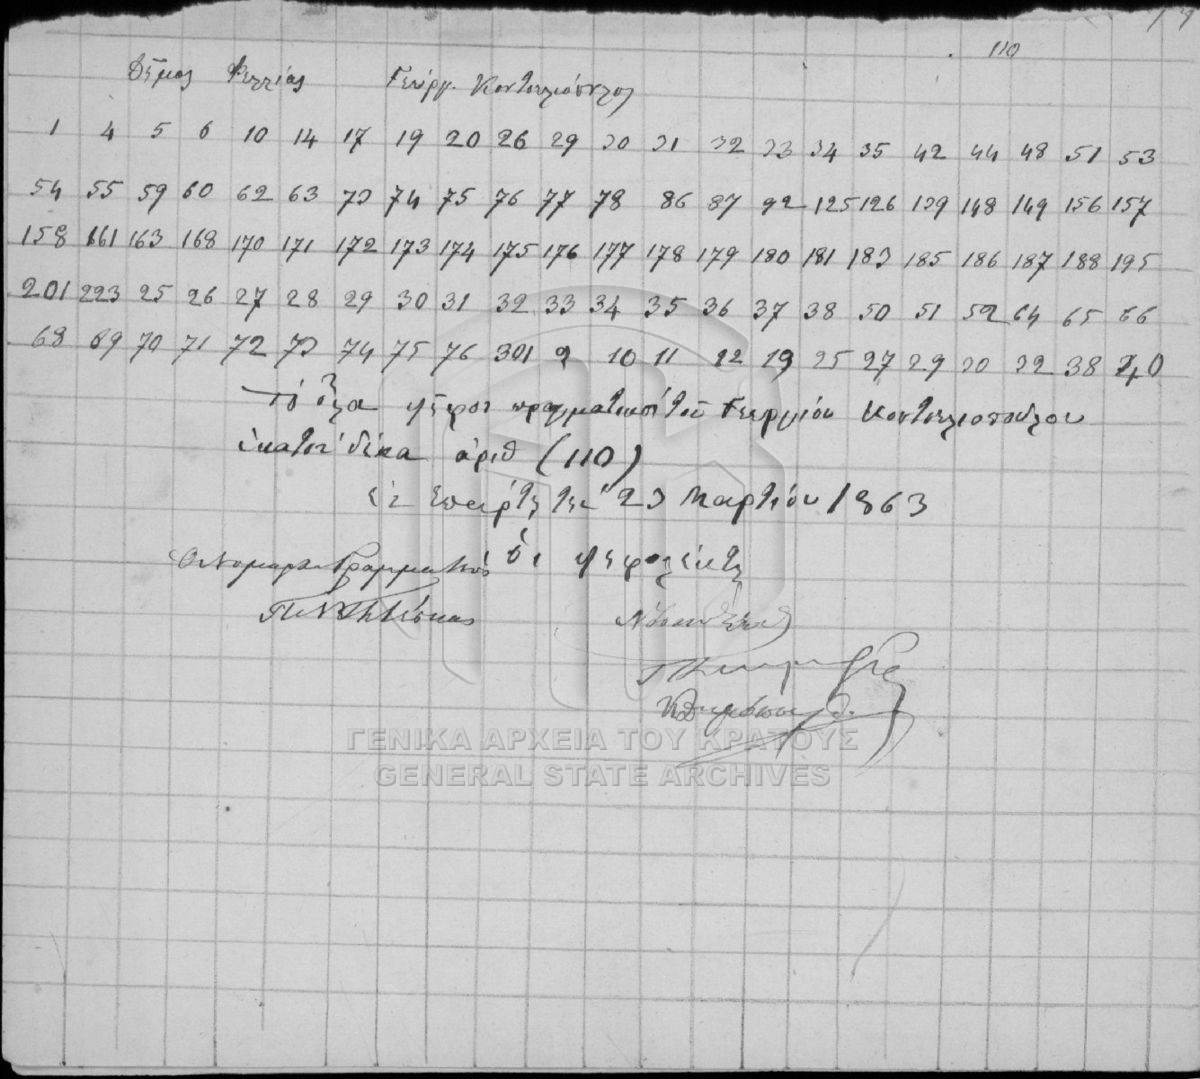 110
Δῆμος Φελλίας Γεώργ. Κοντογλιόπουλος
1 4 5 6 10 14 17 19 20 26 29 30 31 32 33 34 35 42 44 48 51 53
54 55 59 60 62 63 73 74 75 76 77 78 86 87 92 125 126 139 148 149 156 157
158 161 163 168 170 171 172 173 174 175 176 177 178 179 180 181 183 185 186 187 188 195
201 223 25 26 27 28 29 30 31 32 33 34 35 36 37 38 50 51 52 64 65 66
68 69 70 71 72 73 74 75 76 301 9 10 11 12 19 25 27 29 30 32 38 40
τὸ ὅλον ψῆφοι πραγματικαί τοῦ Γεωργίου
ἑκατόν δέκα ἀριθ (110)
Ἐν Σπάρτῃ τῇ 23 Μαρτίου 1863
Ὁ Νομαρχ. Γραμματεύς Οἱ ψηφολέκται
ΓΕΝΙΚΑ ΑΡΧΕΙΑ ΤΟΥ ΚΡΑΤΟΥΣ
GENERAL STATE ARCHIVES